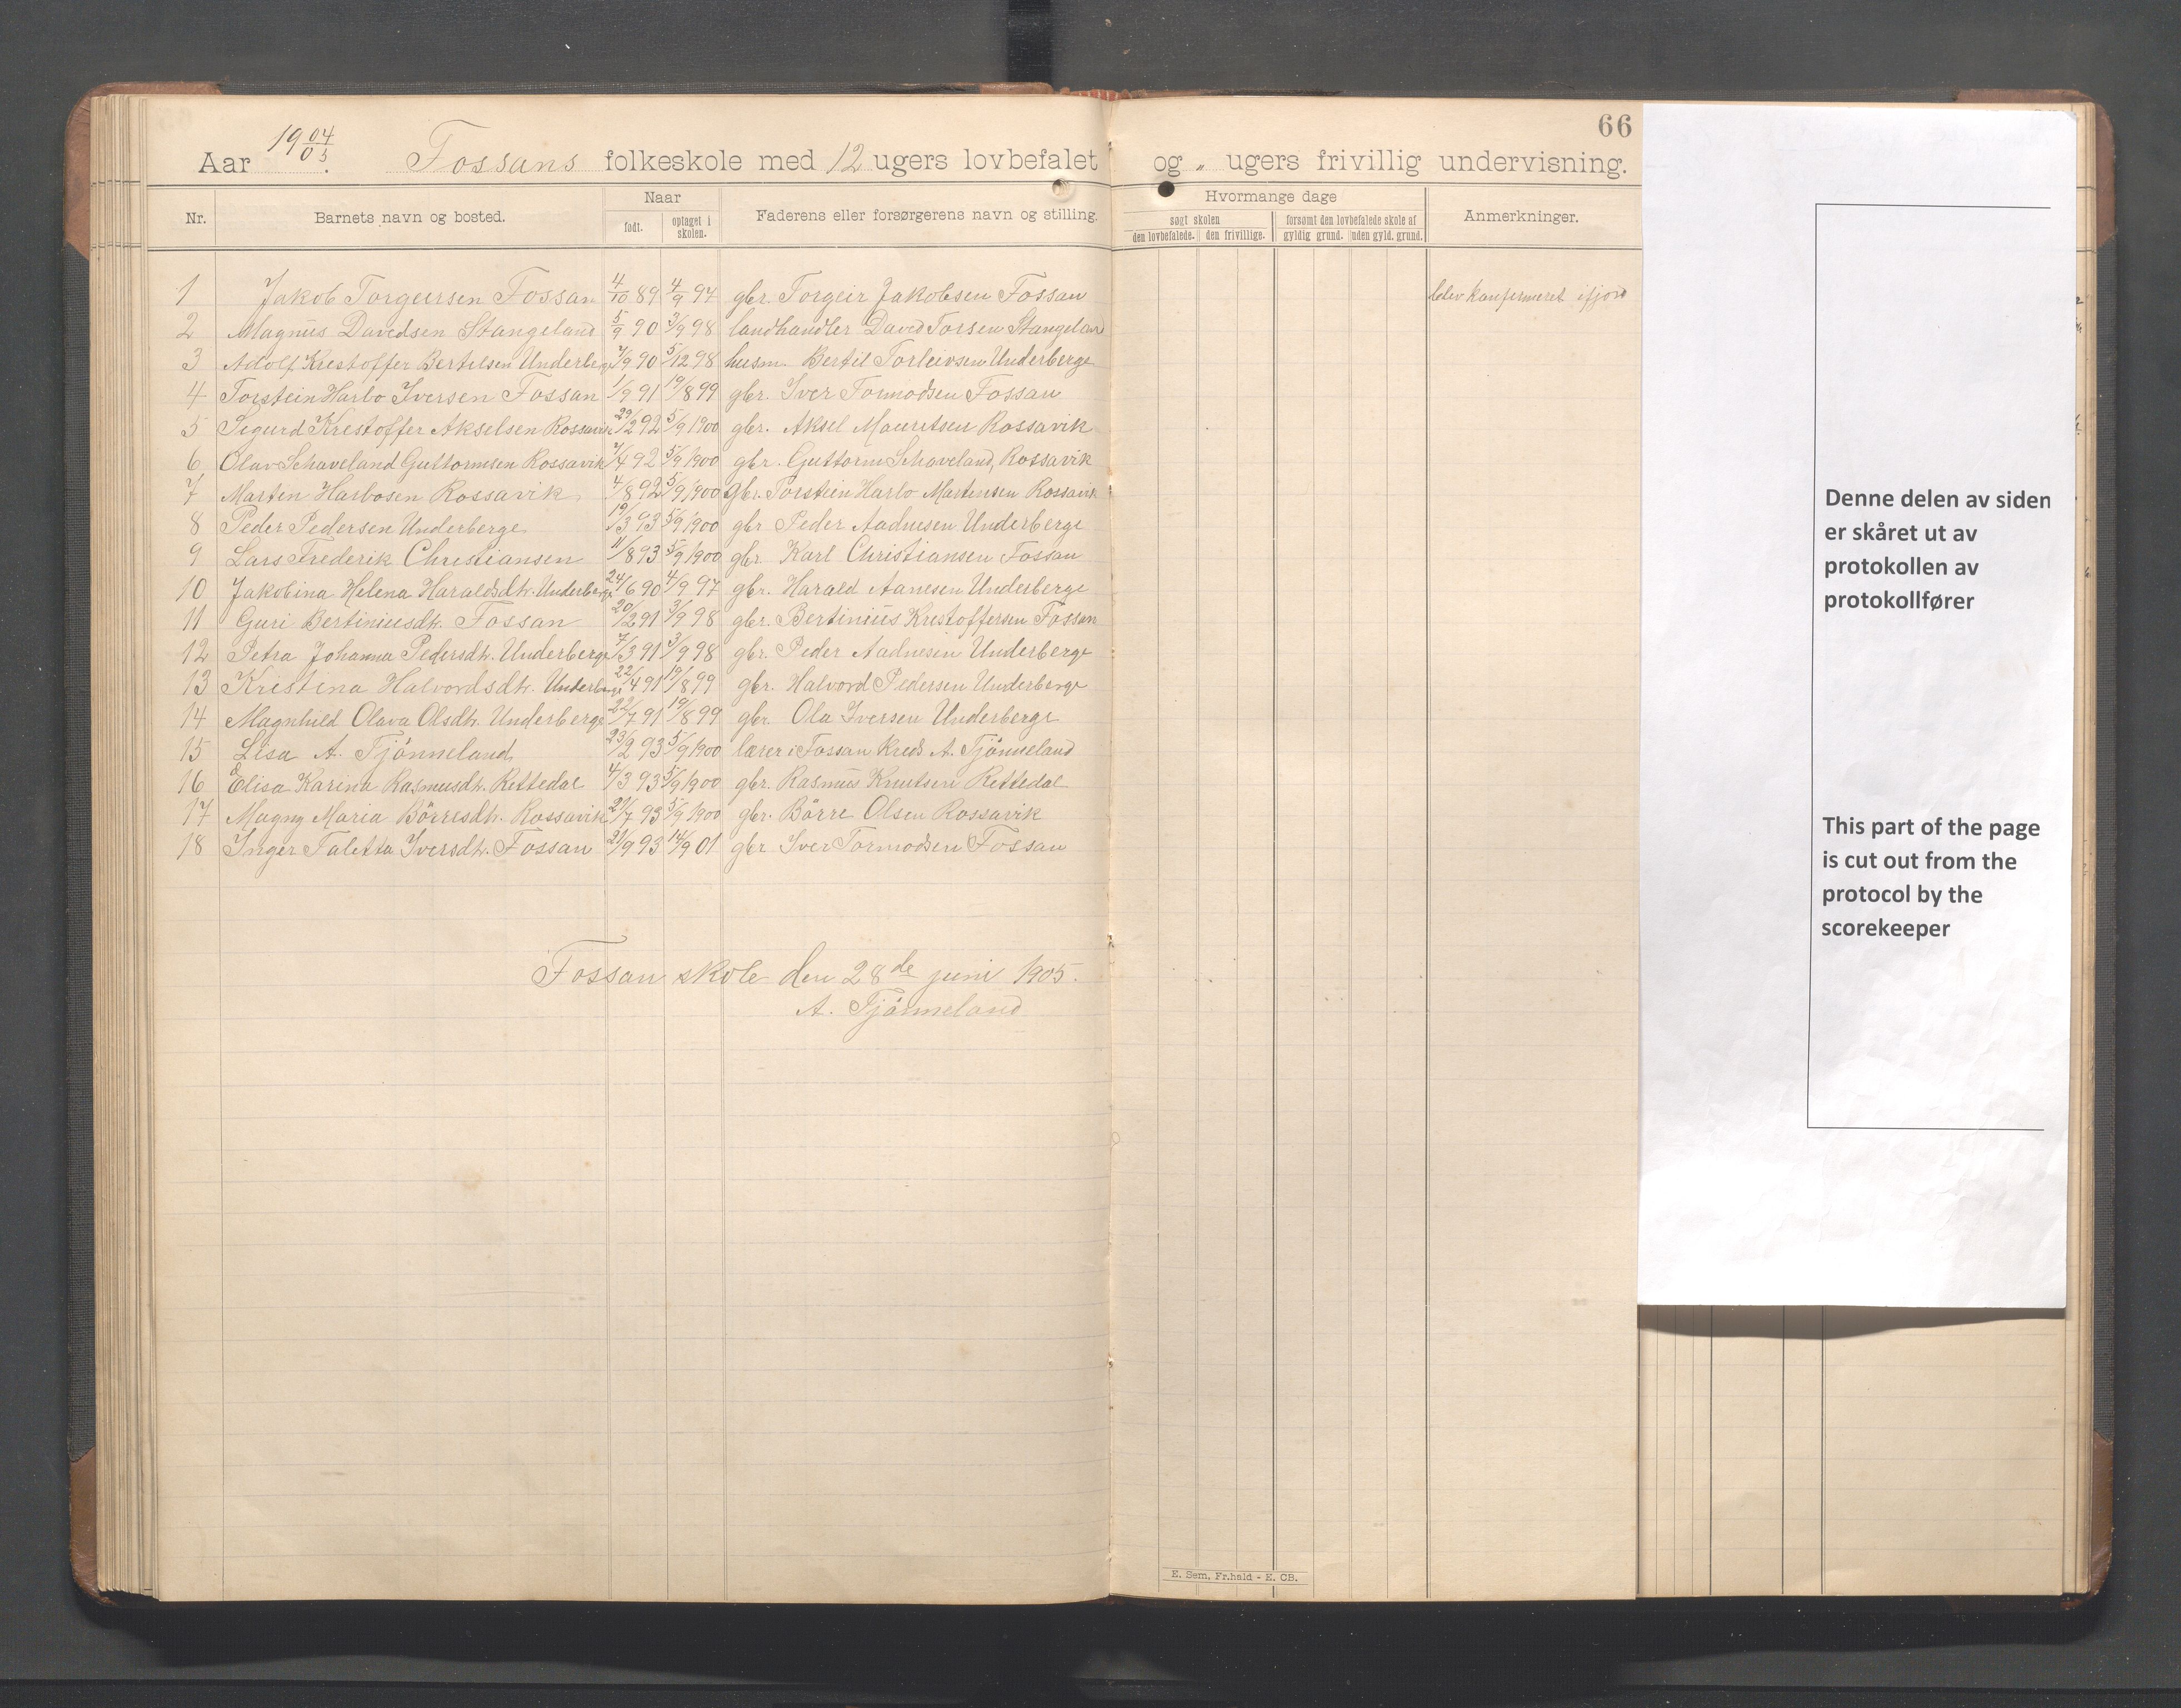 66
Aar 19 04/05. Fossans folkeskole med 12 ugers lovbefalet og „ ugers frivillig undervisning.
Nr. Barnets navn og bosted. Naar født. optaget i skolen. Faderens eller forsørgerens navn og stilling. Hvormange dage søgt skolen den lovbefalede. den frivillige. forsømt den lovbefalede skole af gyldig grund. uden gyld. grund. Anmerkninger.
1 Jakob Torgeirsen Fossan 4/10 89 4/9 97 gbr. Torgeir Jakobsen Fossan blev konfirmeret ifjor
2 Magnus Davedsen Stangeland 5/9 90 3/9 98 landhandler Daved Torsen Stangeland
3 Adolf Krestoffer Bertelsen Underberge 7/9 90 5/12 98 husm. Bertil Torleivsen Underberge
4 Torstein Harbo Iversen Fossan 1/9 91 19/8 99 gbr. Iver Tormodsen Fossan
5 Sigurd Krestoffer Akselsen Rossavik 29/2 92 5/9 1900 gbr. Aksel Mauritsen Rossavik
6 Olav Schaveland Guttormsen Rossavik 7/4 92 5/9 1900 gbr. Guttorm Schaveland, Rossavik
7 Martin Harbosen Rossavik 4/8 92 5/9 1900 gbr. Torstein Harbo Martinsen Rossavik
8 Peder Pedersen Underberge 19/3 93 5/9 1900 gbr Peder Aadnesen Underberge
9 Lars Frederik Christiansen 11/8 93 5/9 1900 gbr. Karl Christiansen Fossan
10 Jakobina Helena Haraldsdtr. Underberge 24/6 90 4/9 97 gbr. Harald Aanesen Underberge
11 Guri Bertiniusdtr. Fossan 20/2 91 3/9 98 gbr. Bertinius Kristoffersen Fossan
12 Petra Johanna Pedersdtr. Underberge 7/3 91 3/9 98 gbr. Peder Aadnesen Underberge
13 Kristina Halvordsdtr. Underberge 22/4 91 19/8 99 gbr. Halvord Pedersen Underberge
14 Magnhild Olava Olsdtr. Underberge 22/7 91 19/8 99 gbr. Ola Iversen Underberge
15 Lisa A. Tjönneland 23/2 93 5/9 1900 lærer i Fossan Kreds A. Tjönneland
16 Elisa Karina Rasmusdtr. Rettedal 4/3 93 5/9 1900 gbr. Rasmus Knutsen Rettedal
17 Magny Maria Börresdtr. Rossavik 21/7 93 5/9 1900 gbr. Börre Olsen Rossavik
18 Inger Taletta Iversdtr. Fossan 21/9 93 14/9 01 gbr Iver Tormodsen Fossan
Fossan skole den 28de juni 1905.
A. Tjönneland
E. Sem, Fr.hald - E. CB.
Denne delen av siden
er skåret ut av
protokollen av
protokollfører
This part of the page
is cut out from the
protocol by the
scorekeeper